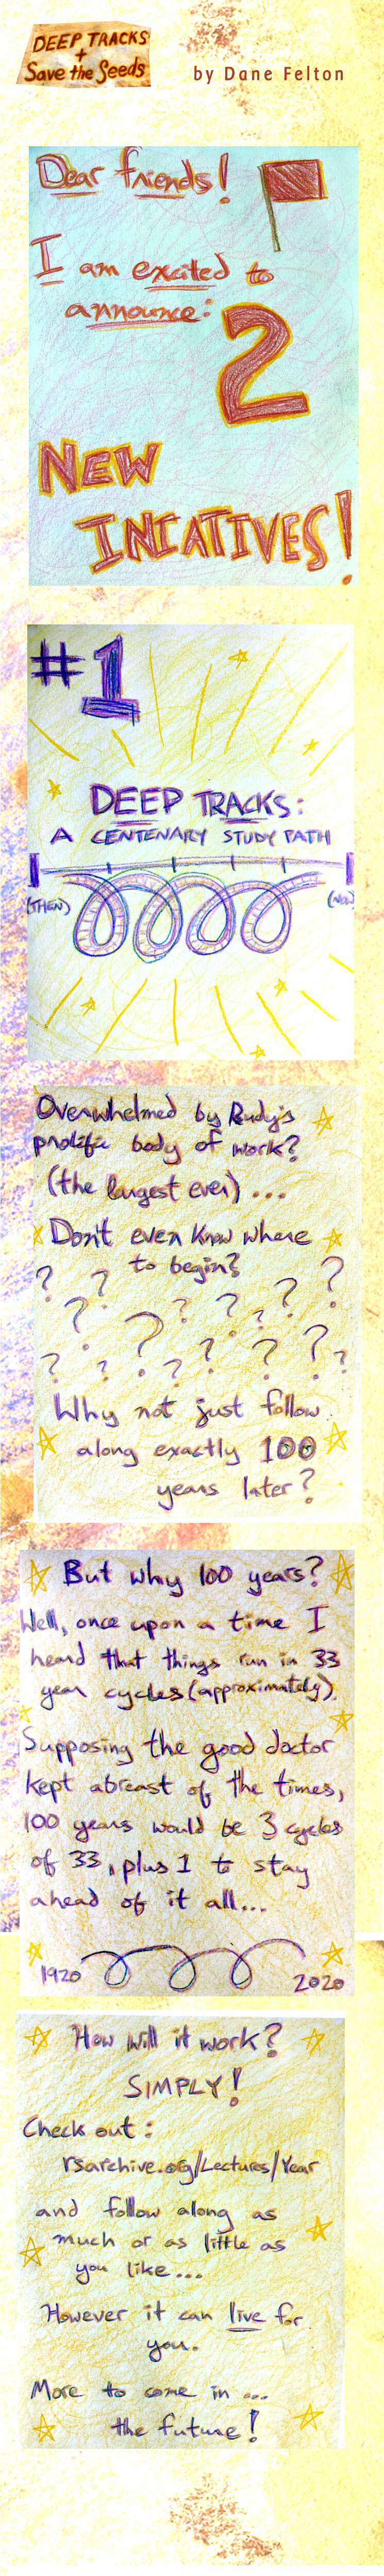 DEEP TRACKS
+
Save the Seeds
by Dane Felton
Dear friends!
I am excited to
announce:
2
NEW
INIATIVES!
#1
DEEP TRACKS:
A CENTENARY STUDY PATH
(THEN)
(NOW)
Overwhelmed by Rudy's
prolific body of work?
(the largest ever)...
Don't even know where
to begin?
? ? ? ?
? ? ? ? ?
? ? ? ? ? ? ? ?
Why not just follow
along exactly 100
years later?
But why 100 years?
Well, once upon a time I
heard that things run in 33
year cycles (approximately).
Supposing the good doctor
kept abreast of the times,
100 years would be 3 cycles
of 33, plus 1 to stay
ahead of it all...
1920
2020
How will it work?
SIMPLY!
Check out:
rsarchive.org/Lectures/Year
and follow along as
much or as little as
you like...
However it can live for
you.
More to come in ...
the future!